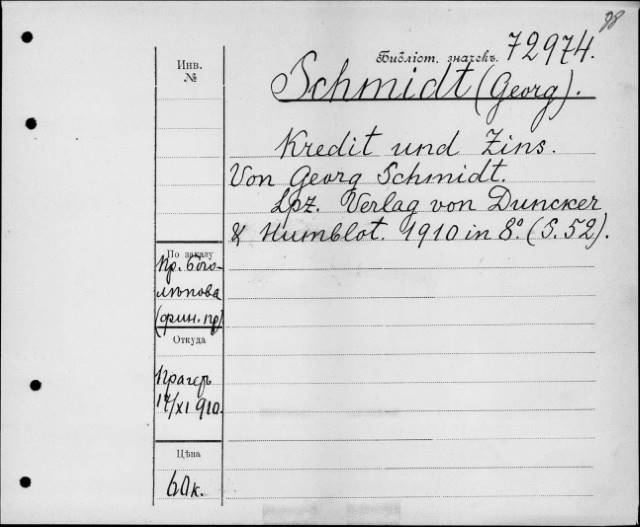 98
Библіот. значекъ. 72974.
Инв.
№
Schmidt (Georg).
Kredit und Zins.
Von Georg Schmidt.
Lpz. Verlag von Duncker
& Humblot. 1910 in 8° (S. 52).
По заказу
Пр. Бого-
лѣпова
(фин. пр)
Откуда
Прагеръ
17/XI 910.
Цѣна
60 к.